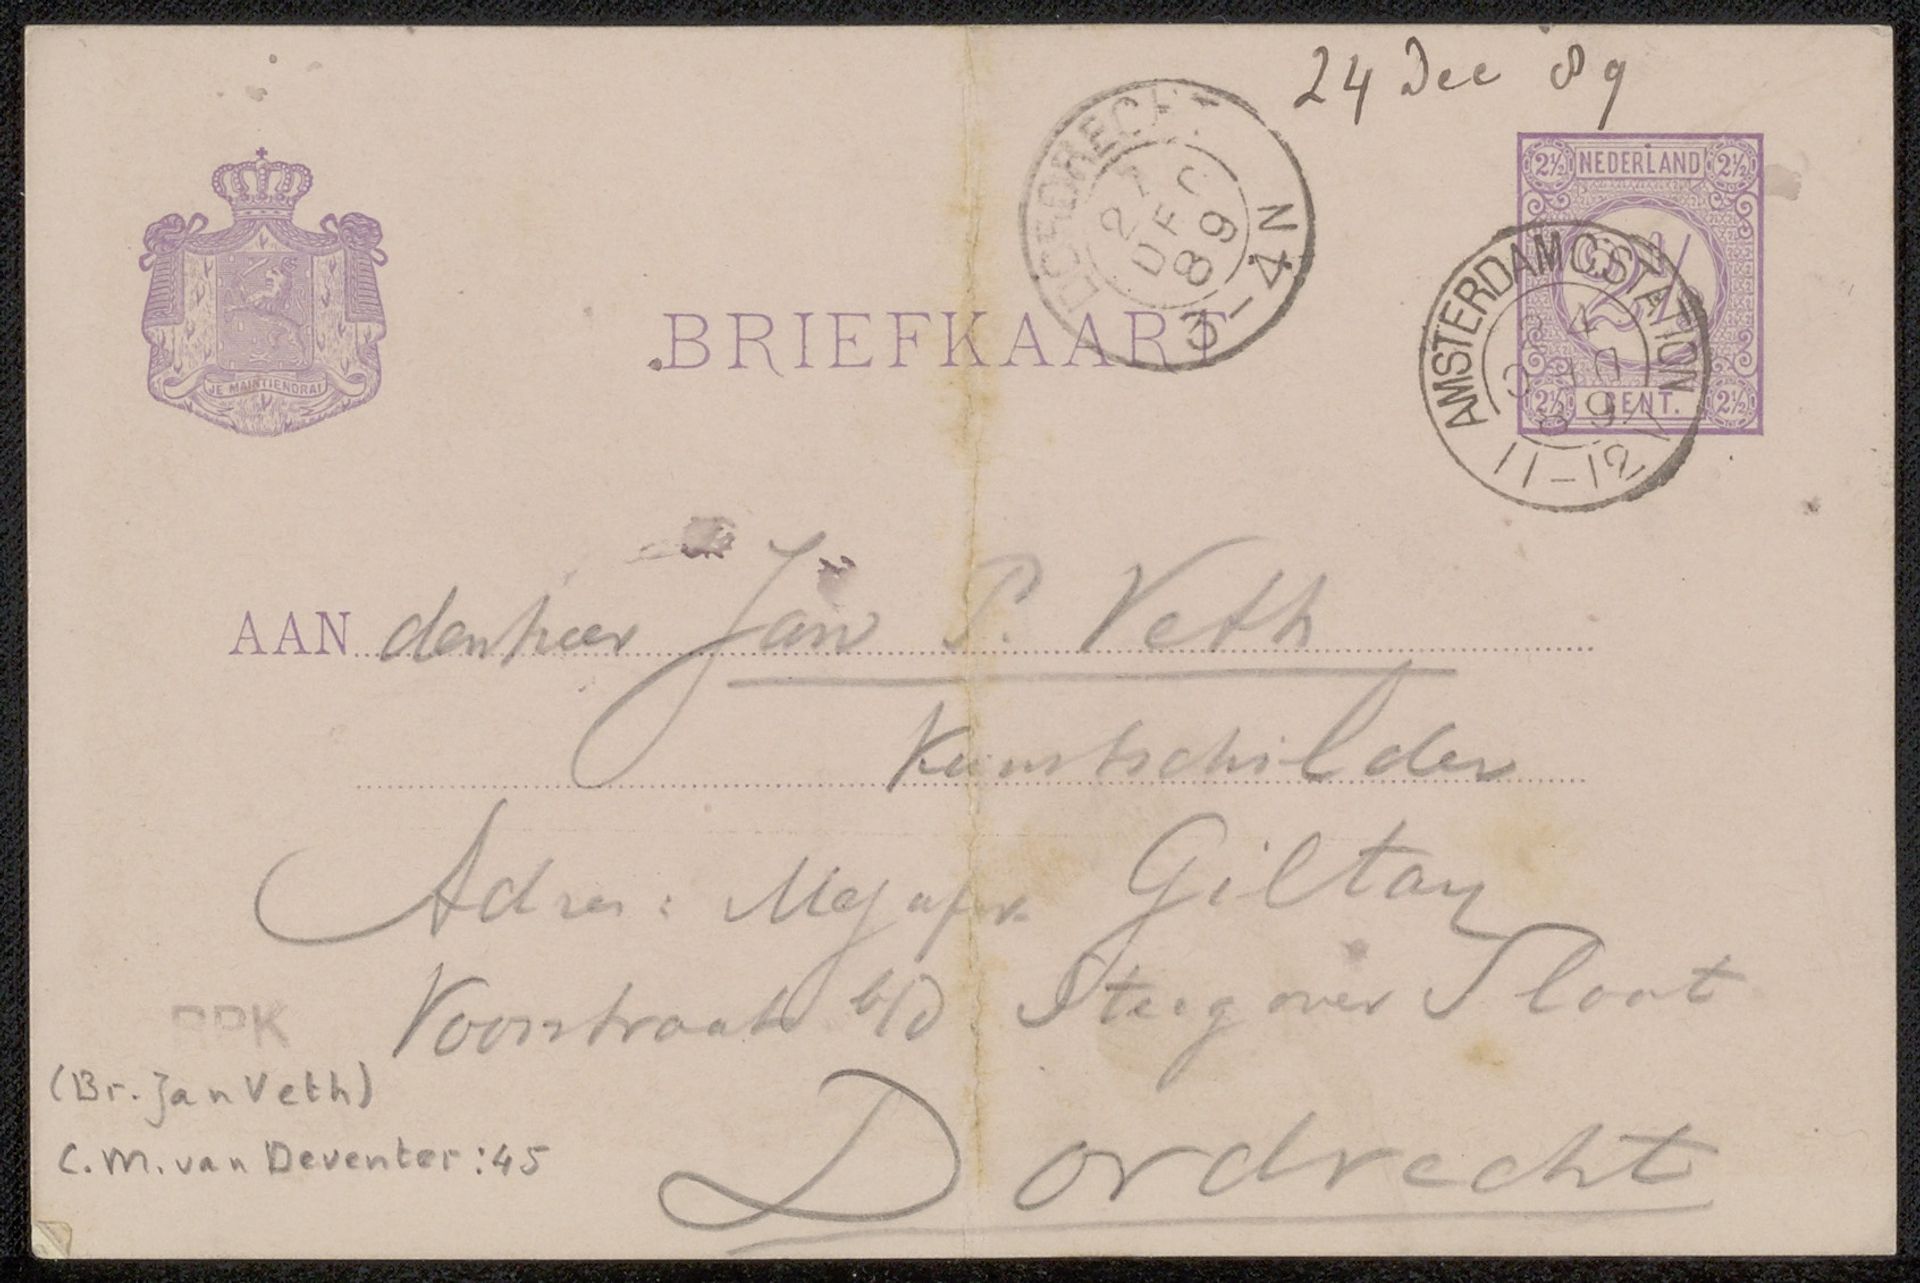 24 Dec 89
NEDERLAND
2½ 2½
2½ CENT. 2½
DORDRECHT
DEC
89
3-4N
AMSTERDAM C.STATION
24
89
11-12V
JE MAINTIENDRAI
BRIEFKAART
AAN den heer Jan P. Veth
Kunstschilder
Adres: Mejufr. Giltay
Voorstraat b/d Steeg over Sloot
Dordrecht
RPK
(Br. Jan Veth)
C.M. van Deventer:45